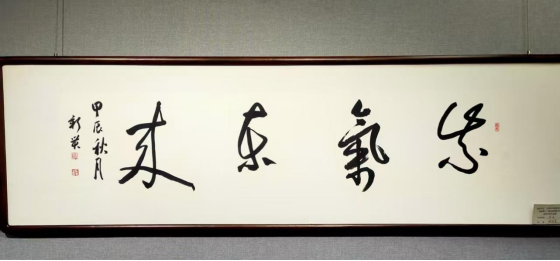 紫氣東來
甲辰秋月
新英